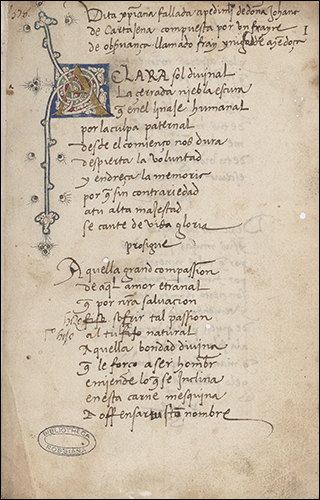 Vita xpiana fallada a pedimiento de doña Johana
de Cartajena compuesta por un frayre
de obseruançia llamado fray ynigo de
I
ACLARA sol diuinal
La cerrada niebla escura
q̃ en el linaje humanal
por la culpa paternal
desde el comienço nos dura
despierta la voluntad
y endreça la memoria
por q̃ sin contrariedad
a tu alta majestad
se cante deuida gloria
prosigue
Aquella grand compassion
de aq̃l amor etranal
q̃ por nr̃a saluaçion
hize sofrir tal passion
al tu fijo natural
Aquella bondad diuina
q̃ le forço a ser hombre
emiende lo q̃ se inclina
en esta carne mesquina
A offensar tu sto nombre
BIBLIOTHECA
CORSIANA